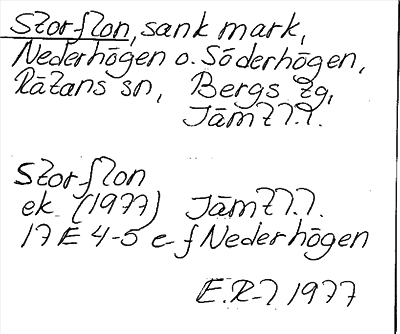 Storflon, sank mark,
Nederhögen o. Söderhögen,
Rätans sn, Bergs tg,
Jämtl.
Storflon
ek. (1977) Jämtl.
17E 4-5 e-f Nederhögen
E.R-7 1977